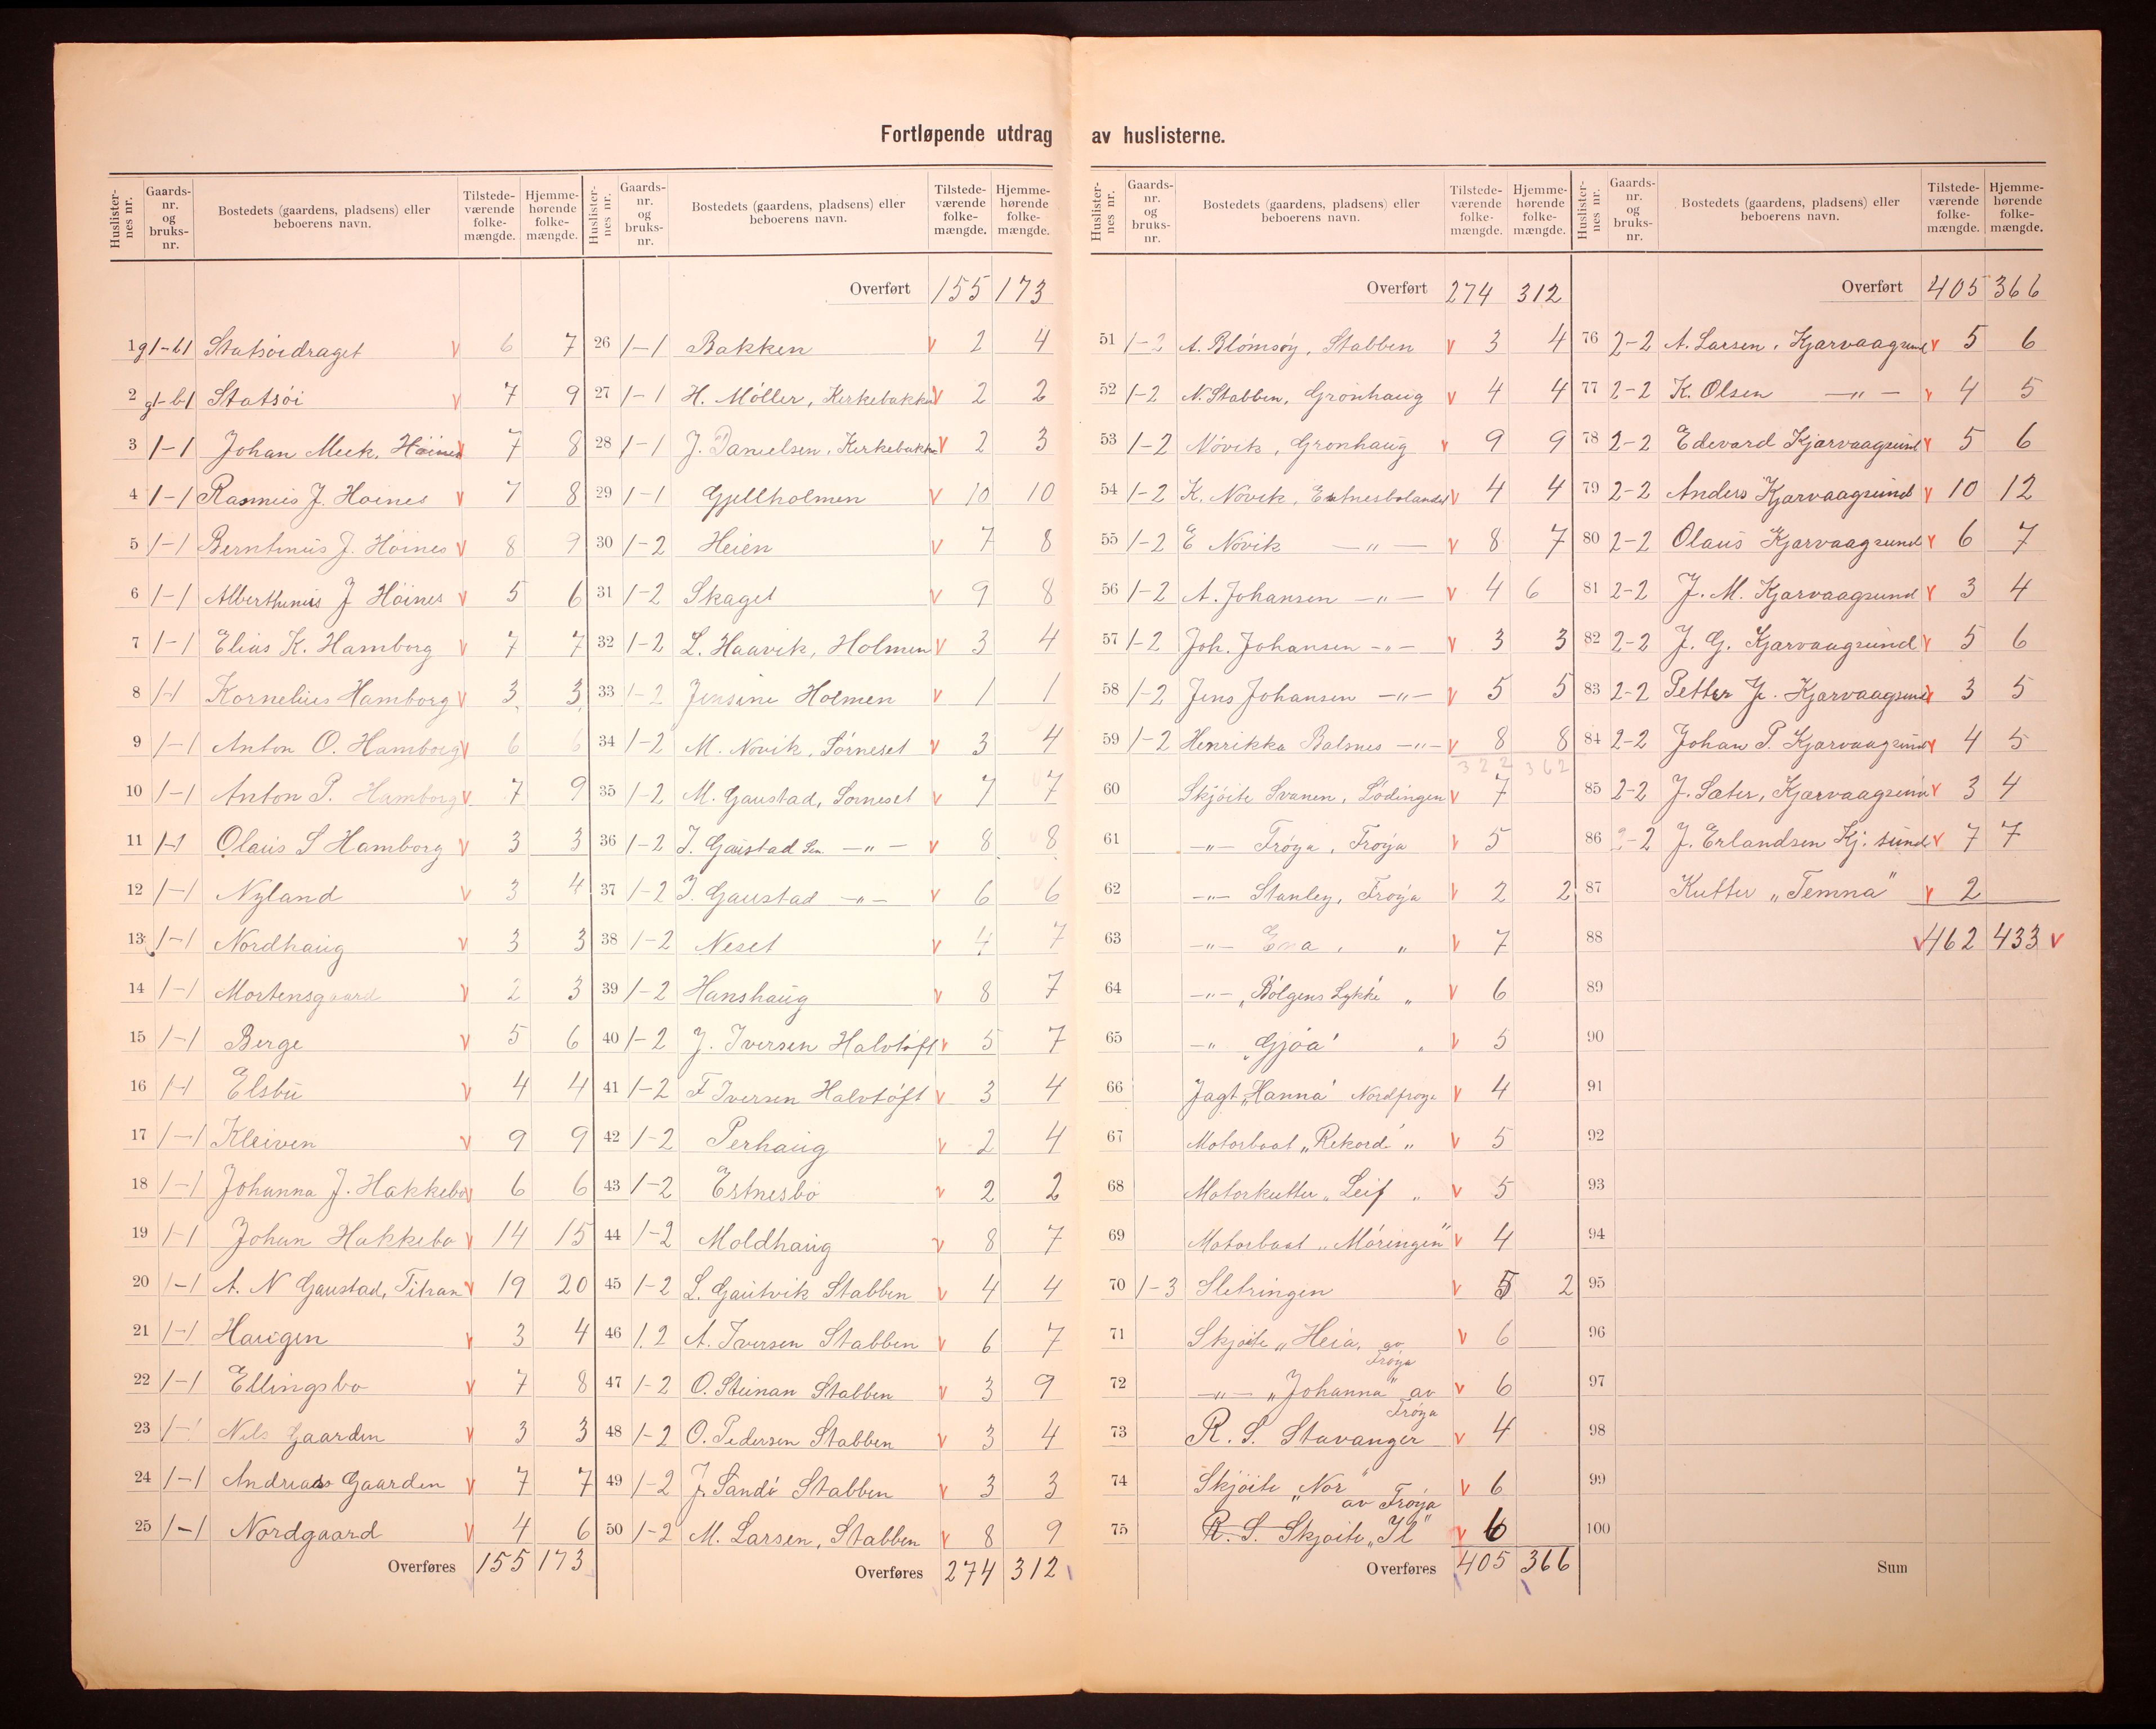 Fortløpende utdrag av huslisterne.
Huslisternes nr. Gaards-nr. og bruks-nr. Bostedets (gaardens, pladsens) eller beboerens navn. Tilstedeværende folkemængde. Hjemmehørende folkemængde.
1 g1-b1 Statsøidraget v 6 7
2 g1-b1 Statsöi v 7 9
3 1-1 Johan Meek, Höines v 7 8
4 1-1 Rasmus J. Hoines v 7 8
5 1-1 Berntinus J. Höines v 8 9
6 1-1 Alberthinius J Höines v 5 6
7 1-1 Elias K. Hamborg v 7 7
8 1-1 Kornelius Hamborg v 3 3
9 1-1 Anton O. Hamborg v 6 6
10 1-1 Anton P. Hamborg v 7 9
11 1-1 Olaus S Hamborg v 3 3
12 1-1 Nyland v 3 4
13 1-1 Nordhaug v 3 3
14 1-1 Mortensgaard v 2 3
15 1-1 Berge v 5 6
16 1-1 Elsbu v 4 4
17 1-1 Kleiven v 9 9
18 1-1 Johanna J. Hakkebo v 6 6
19 1-1 Johan Hakkebo v 14 15
20 1-1 A. N Gaustad, Titran v 19 20
21 1-1 Haugen v 3 4
22 1-1 Ellingsbo v 7 8
23 1-1 Nils Gaarden v 3 3
24 1-1 Andreas Gaarden v 7 7
25 1-1 Nordgaard v 4 6
Overføres 155 173
Huslisternes nr. Gaards-nr. og bruks-nr. Bostedets (gaardens, pladsens) eller beboerens navn. Tilstedeværende folkemængde. Hjemmehørende folkemængde.
Overført 155 173
26 1-1 Bakken v 2 4
27 1-1 H. Möller, Kirkebakken v 2 2
28 1-1 J. Danielsen, Kirkebakke v 2 3
29 1-1 Gjellholmen v 10 10
30 1-2 Heien v 7 8
31 1-2 Skaget v 9 8
32 1-2 L. Haavik, Holmen v 3 4
33 1-2 Jensine Holmen v 1 1
34 1-2 M. Novik, Sörneset v 3 4
35 1-2 M. Gaustad, Sorneset v 7 7
36 1-2 I. Gaustad Sen. -"- v 8 8
37 1-2 I. Gaustad -"- v 6 6
38 1-2 Neset v 4 7
39 1-2 Hanshaug v 8 7
40 1-2 J. Iversen Halvtöft v 5 7
41 1-2 F Iversen Halvtöft v 3 4
42 1-2 Perhaug v 2 4
43 1-2 Estnesbo v 2 2
44 1-2 Moldhaug v 8 7
45 1-2 L. Gautvik Stabben v 4 4
46 1.2 A. Iversen Stabben v 6 7
47 1-2 O. Steinan Stabben v 3 9
48 1-2 O. Pedersen Stabben v 3 4
49 1-2 J. Sandö Stabben v 3 3
50 1-2 M. Larsen, Stabben v 8 9
Overføres 274 312
Huslisternes nr. Gaards-nr. og bruks-nr. Bostedets (gaardens, pladsens) eller beboerens navn. Tilstedeværende folkemængde. Hjemmehørende folkemængde.
Overført 274 312
51 1-2 A. Blömsöy, Stabben v 3 4
52 1-2 N. Stabben, Gronhaug v 4 4
53 1-2 Növik, Gronhaug v 9 9
54 1-2 K. Novik, v 4 4
55 1-2 E Novik -"- v 8 7
56 1-2 A. Johansen -"- v 4 6
57 1-2 Joh. Johansen -"- v 3 3
58 1-2 Jens Johansen -"- v 5 5
59 1-2 Henrikka Balsnes -"- v 8 8
322 362
60 Skjöite Svanen, Lödingen v 7
61 -"- Fröya, Fröya v 5
62 -"- Stanley, Fröya v 2 2
63 -"- Ena, " v 7
64 -"- "Bölgens Lykke " v 6
65 -" "Gjöa" " v 5
66 Jagt "Hanna" Nordfroya v 4
67 Motorbaat "Rekord" " v 5
68 Motorkutter "Leif " v 5
69 Motorbaat "Möringen" v 4
70 1-3 Sletringen v 5 2
71 Skjöite "Heia, av Fröya v 6
72 -"- "Johanna" av Fröya v 6
73 R. S. Stavanger v 4
74 Skjöite "Nor" av Fröya v 6
75 R. S. Skjoite "Il" v 6
Overføres 405 366
Huslisternes nr. Gaards-nr. og bruks-nr. Bostedets (gaardens, pladsens) eller beboerens navn. Tilstedeværende folkemængde. Hjemmehørende folkemængde.
Overført 405 366
76 2-2 A. Larsen, Kjarvaagsund v 5 6
77 2-2 K. Olsen -"- v 4 5
78 2-2 Edevard Kjarvaagsund v 5 6
79 2-2 Anders Kjarvaagsund v 10 12
80 2-2 Olaus Kjarvaagsund v 6 7
81 2-2 J. M. Kjarvaagsund v 3 4
82 2-2 J. G. Kjarvaagsund v 5 6
83 2-2 Petter J. Kjarvaagsund v 3 5
84 2-2 Johan P. Kjarvaagsund v 4 5
85 2-2 J. Sater, Kjarvaagsund v 3 4
86 2-2 J. Erlandsen Kj. sund v 7 7
87 Kutter "Temna" v 2
88 v 462 433 v
89
90
91
92
93
94
95
96
97
98
99
100
Sum